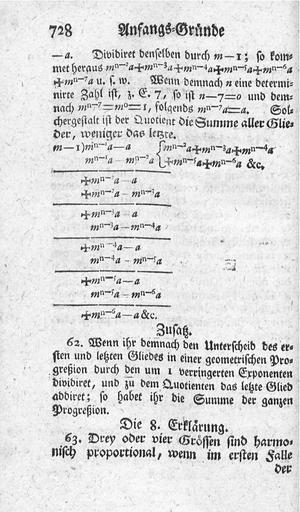 728 Anfangs-Gründe
—a. Dividiret denselben durch m—1; so kom-
met heraus mⁿ⁻²a+mⁿ⁻³a+mⁿ⁻⁴a+mⁿ⁻⁵a+mⁿ⁻⁶a
+mⁿ⁻⁷a u. s. w. Wenn demnach n eine determi-
nirte Zahl ist, z. E. 7, so ist n—7=0 und dem-
nach mⁿ⁻⁷=m⁰=1, folgends mⁿ⁻⁷a=a. Sol-
chergestalt ist der Quotient die Summe aller Glie-
der, weniger das letzte.
m—1)mⁿ⁻¹a—a {mⁿ⁻²a+mⁿ⁻³a+mⁿ⁻⁴a
mⁿ⁻¹a—mⁿ⁻²a {+mⁿ⁻⁵a+mⁿ⁻⁶a &c.
+mⁿ⁻²a—a
mⁿ⁻²a—mⁿ⁻³a
+mⁿ⁻³a—a
mⁿ⁻³a—mⁿ⁻⁴a
+mⁿ⁻⁴a—a
mⁿ⁻⁴a—mⁿ⁻⁵a
+mⁿ⁻⁵a—a
mⁿ⁻⁵a—mⁿ⁻⁶a
+mⁿ⁻⁶a—a &c.
Zusatz.
62. Wenn ihr demnach den Unterscheid des er-
sten und letzten Gliedes in einer geometrischen Pro-
greßion durch den um 1 verringerten Exponenten
dividiret, und zu dem Quotienten das letzte Glied
addiret; so habet ihr die Summe der ganzen
Progreßion.
Die 8. Erklärung.
63. Drey oder vier Grössen sind harmo-
nisch proportional, wenn im ersten Falle
der